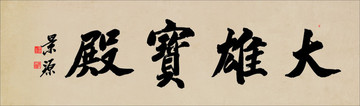 大雄寶殿
景源